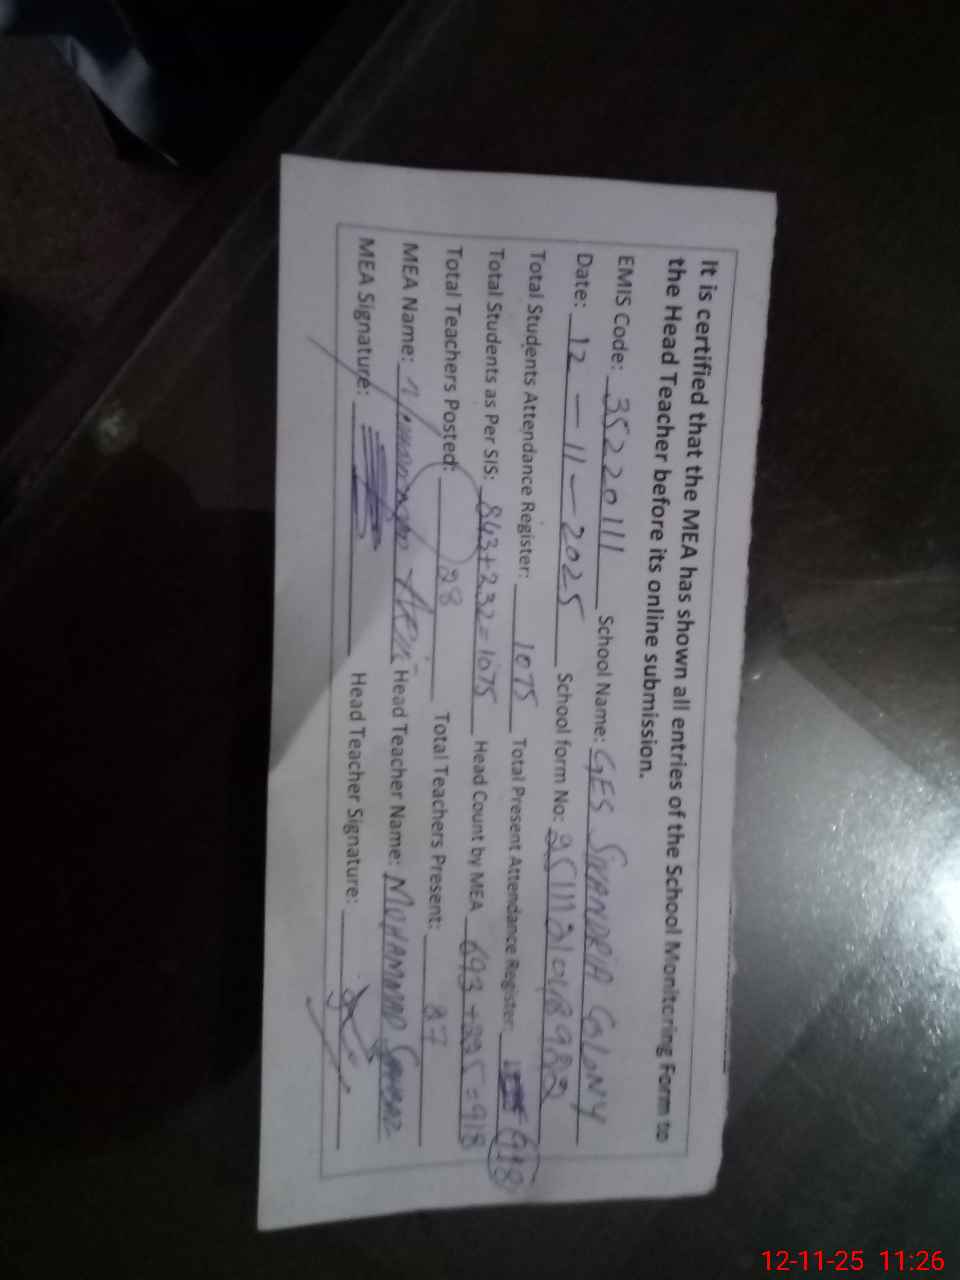 It is certified that the MEA has shown all entries of the School Monitoring Form to
the Head Teacher before its online submission.
EMIS Code: 35220111 School Name: GES SIKANDRIA COLONY
Date: 12-11-2025 School form No:
Total Students Attendance Register: 1075 Total Present Attendance Register: 918
Total Students as Per SIS: 843+232=1075 Head Count by MEA 693+225=918
Total Teachers Posted: 28 Total Teachers Present: 27
MEA Name: Head Teacher Name: MUHAMMAD
MEA Signature: Head Teacher Signature:
12-11-25 11:26